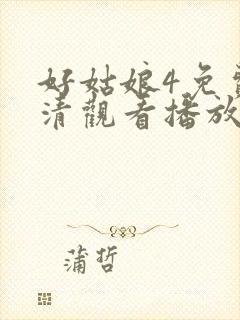 好姑娘4免
清觀看播放
蒲哲